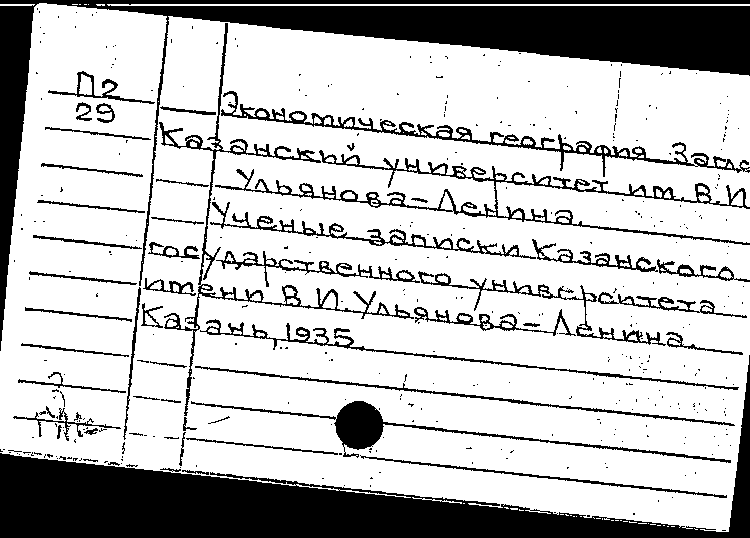 П2
29
Экономическая география Загл
Казанский университет им. В.И
Ульянова-Ленина.
Ученые записки Казанского
государственного университета
имени В.И. Ульянова-Ленина.
Казань, 1935.